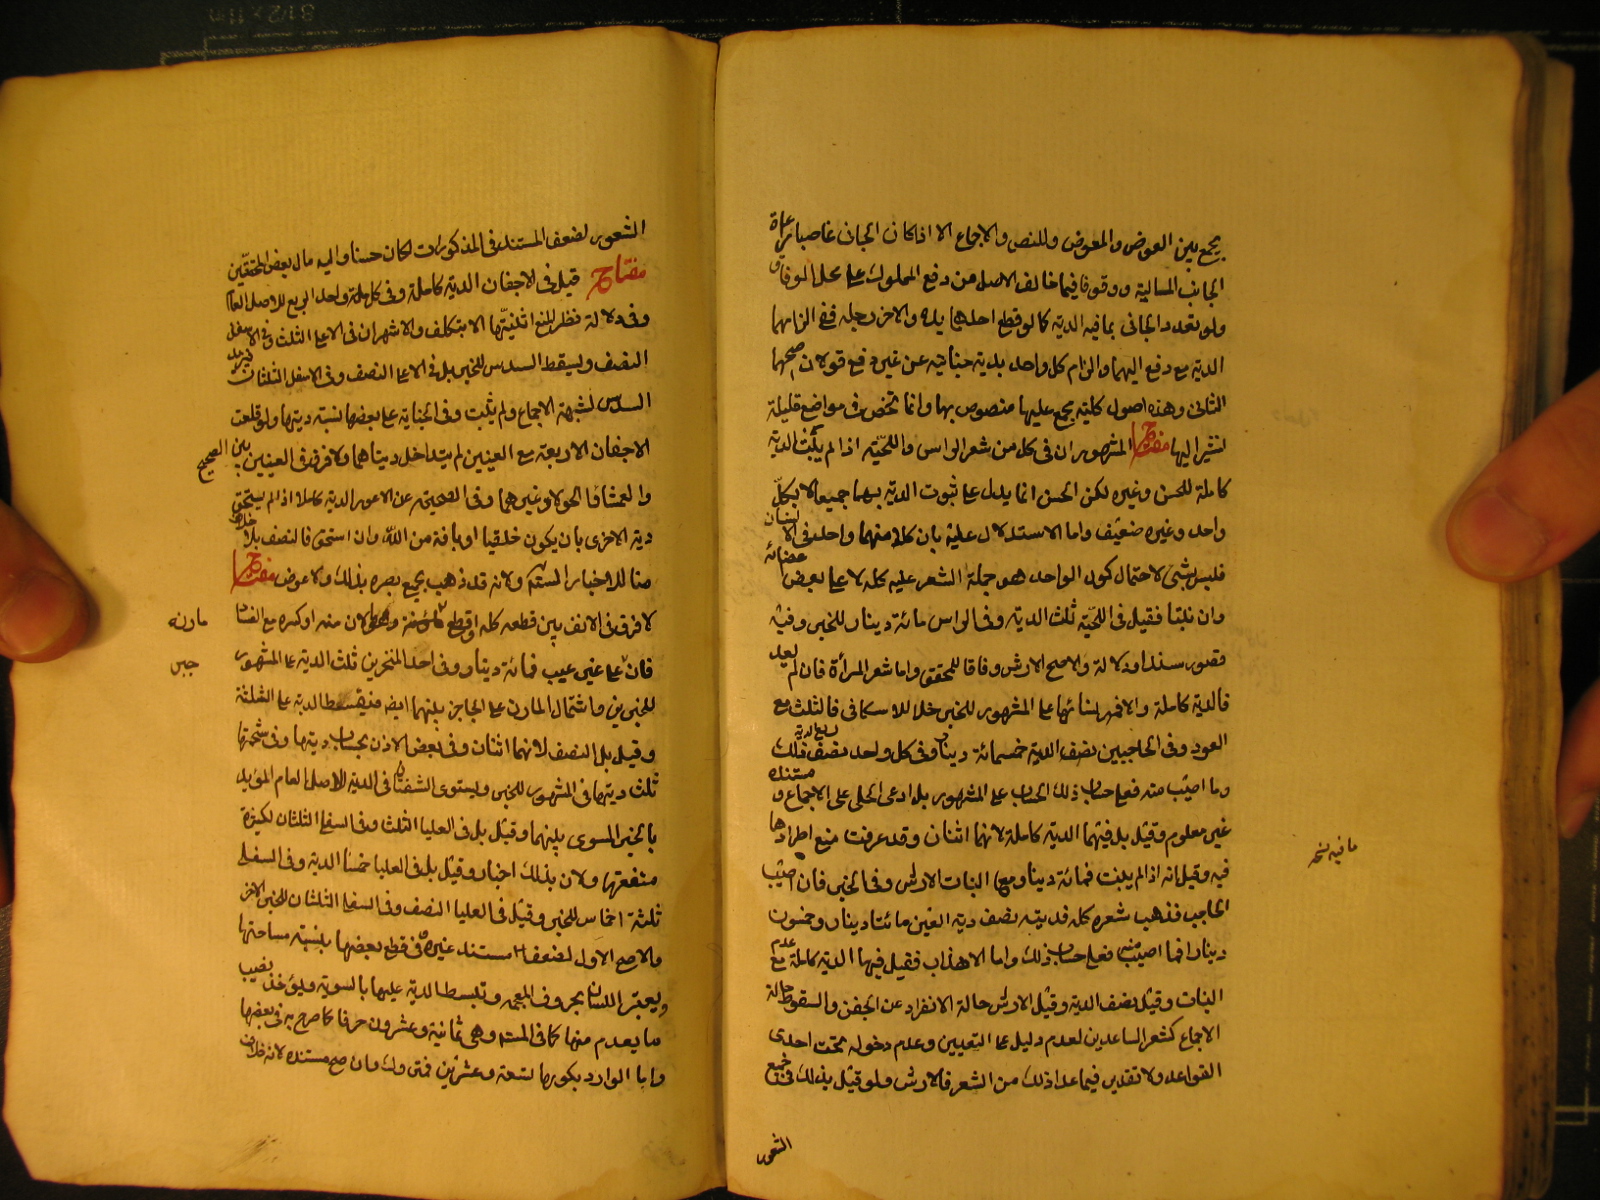 يجمع بين العوض والمعوض وللنص والاجماع الا اذا كان الجانى غاصبا مراعاة
لجانب المسالية ووقوفا فيما خالف الاصل من دفع المملوك على محل الوفاق
ولو تعدد الجانى بما فيه الدية كما لو قطع احدهما يده والاخر رجله ففى الزامهما
الدية مع دفع اليهما والزام كل واحد بدية جنايته عن غير دفع قولان اصحهما
الثانى وهذه اصول كلية مجمع عليها منصوص بها وانما تخص فى مواضع قليلة
نشير اليها مفتاح المشهور ان فى كل من شعر الراس واللحية اذا لم ينبت الدية
كاملة للحسن وغيره لكن الحسن انما يدل على ثبوت الدية بهما جميعا لا بكل
واحد وغيره ضعيف واما الاستدلال عليه بان كلا منهما واحد فى الانسان
فليس بشئ لاحتمال كون الواحد هو جملة الشعر عليه كله لا على بعض اعضائه
وان نبتا فقيل فى اللحية ثلث الدية وفى الراس مائة دينار للخبر وفيه
قصور سندا ودلالة والاصح الارش وفاقا للمحقق واما شعر المرأة فان لم يعد
فالدية كاملة والا فمهر نسائها على المشهور للخبر خلافا للاسكافى فالثلث مع
العود وفى الحاجبين نصف الدية خمسمائة دينار وفى كل واحد نصف ذلك ربع الدية
وما اصيب منه فعلى حساب ذلك الحساب على المشهور بل ادعى الحلى على الاجماع و مستنده
غير معلوم وقيل بل فيهما الدية كاملة لانهما اثنان وقد عرفت منع اطرادها
فيه وقيل انه اذا لم ينبت فمائة دينار ومع النبات الارش وفى الخبر فان اصيب
الحاجب فذهب شعره كله فديته نصف دية العين مائتا دينار وخمسون
دينارا فما اصيب منه فعلى حساب ذلك واما الاهداب فقيل فيها الدية كاملة مع عدم
النبات وقيل نصف الدية وقيل الارش حالة الانفراد عن الجفن والسقوط حالة
الاجماع كشعر الساعدين لعدم دليل على التعيين وعدم دخوله تحت احدى
القواعد ولا تقدير فيما عدا ذلك من الشعر فالارش ولو قيل بذلك فى جميع
الشعور
ما فيه نسخه
الشعور لضعف المستند فى المذكورات لكان حسنا واليه مال بعض المحققين
مفتاح قيل فى الاجفان الدية كاملة وفى كل واحد الربع للاصل العام
وفى دلالة نظر لمنع اثنيتها الا بتكلف والاشهر ان فى الاعلى الثلث وفى الاسفل
النصف ويسقط السدس للخبر بل فى الاعلى النصف وفى الاسفل الثلثان فيزيد
السدس لشبهة الاجماع ولم يثبت وفى الجناية على بعضها بنسبة ديتها ولو قلعت
الاجفان الاربعة مع العينين لم يتداخل ديتاهما ولا فرق فى العينين بين الصحيح
والعمشا والحولا وغيرهما وفى الصحيحة عن الاعور الدية كاملة اذا لم يستحق
دية الاخرى بان يكون خلقيا او بافة من الله وان استحق فالنصف بلا خلاف
منا للاخبار المستفيضة ولانه قد ذهب بجميع بصره بذلك ولا عوض مفتاح
لا فرق فى الانف بين قطعه كله او قطع مارنه منه او كسره مع الفساد
مارنه
فان على غير عيب فمائة دينار وفى احد المنخرين ثلث الدية على المشهور
جبر
للخبرين واشتمال المارن على الحاجز بينهما ايضا فيقسط الدية على الثلثة
وقيل بل النصف لانهما اثنان وفى بعض الاذن بحساب ديتها وفى شحمتها
ثلث ديتها فى المشهور للخبر ويستوى الشفتان فى الدية للاصل العام المؤيد
بالخبر المسوى بينهما وقيل بل فى العليا الثلث وفى السفلى الثلثان لكثرة
منفعتها ولان بذلك اخبار وقيل بل فى العليا خمسا الدية وفى السفلى
ثلثة اخماس للخبر وقيل فى العليا النصف وفى السفلى الثلثان للخبر الاخر
والاصح الاول لضعف مستند غيره وفى قطع بعضها بنسبة مساحتها
ويعتبر اللسان بحروف المعجمة وتبسط الدية عليها بالسوية ويؤخذ نصيب
ما يعدم منها كما فى المستفيضة وهى ثمانية وعشرون حرفا كما صرح به فى بعضها
واما الوارد بكونها تسعة وعشرين فمتروك وان صح مستنده لانه خلاف